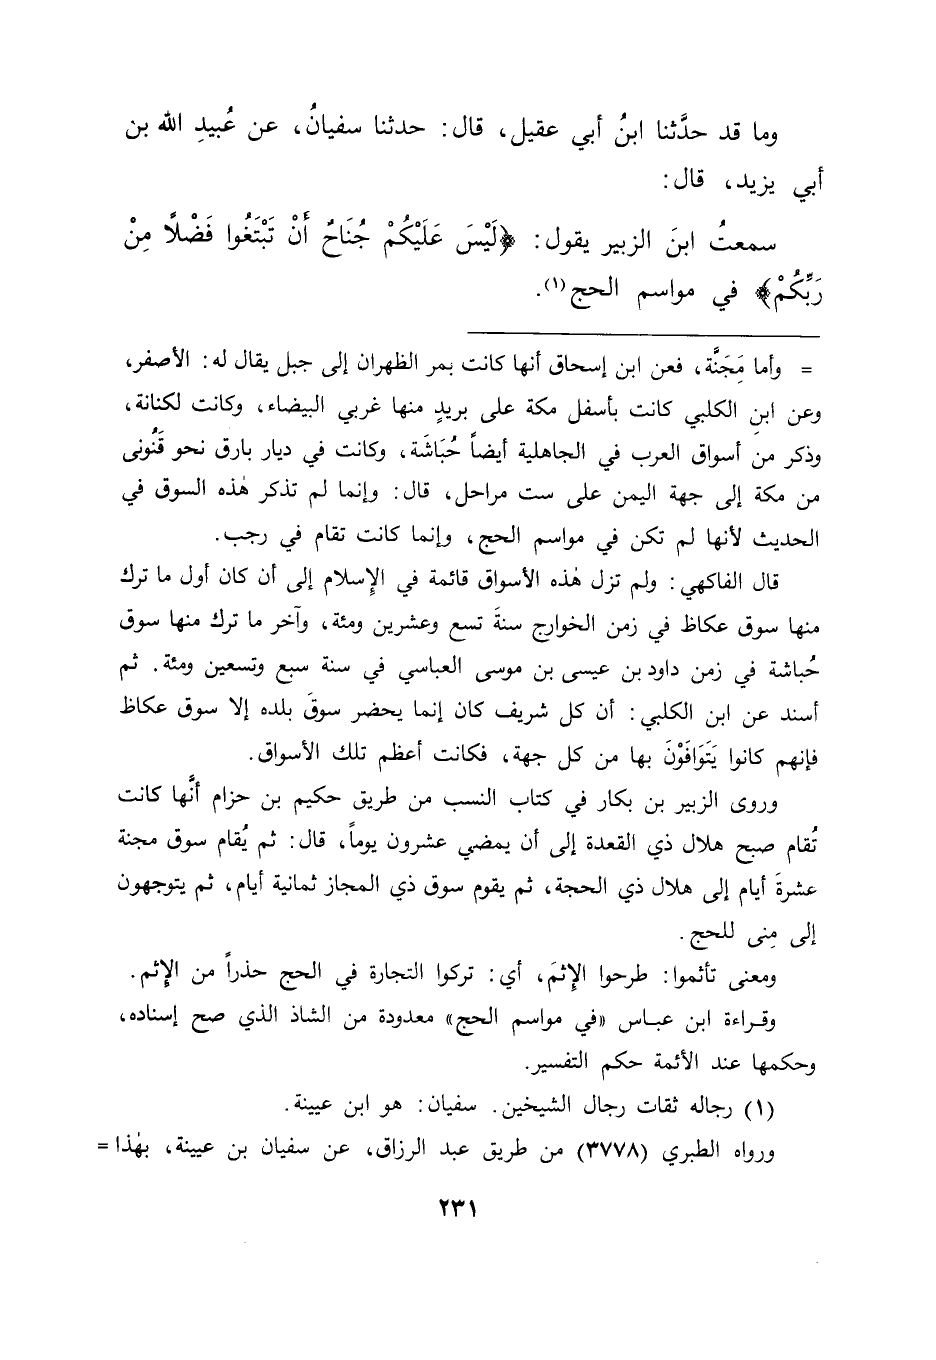 وما قد حدَّثنا ابنُ أبي عقيل، قال: حدثنا سفيانُ، عن عُبيدِ الله بن
أبي يزيد، قال:
سمعتُ ابنَ الزبير يقول: ﴿لَيْسَ عَلَيْكُمْ جُنَاحٌ أَنْ تَبْتَغُوا فَضْلًا مِنْ
رَبِّكُمْ﴾ في مواسم الحج(١).
= وأما مَجَنَّة، فعن ابن إسحاق أنها كانت بمر الظهران إلى جبل يقال له: الأصفر،
وعن ابن الكلبي كانت بأسفل مكة على بريدٍ منها غربي البيضاء، وكانت لكنانة،
وذكر من أسواق العرب في الجاهلية أيضاً حُبَاشَة، وكانت في ديار بارق نحو قَنُونى
من مكة إلى جهة اليمن على ست مراحل، قال: وإنما لم تذكر هٰذه السوق في
الحديث لأنها لم تكن في مواسم الحج، وإنما كانت تقام في رجب.
قال الفاكهي: ولم تزل هٰذه الأسواق قائمة في الإِسلام إلى أن كان أول ما ترك
منها سوق عكاظ في زمن الخوارج سنةَ تسع وعشرين ومئة، وآخر ما ترك منها سوق
حُباشة في زمن داود بن عيسى بن موسى العباسي في سنة سبع وتسعين ومئة. ثم
أسند عن ابن الكلبي: أن كل شريف كان إنما يحضر سوقَ بلده إلا سوق عكاظ
فإنهم كانوا يَتَوَافَوْنَ بها من كل جهة، فكانت أعظم تلك الأسواق.
وروى الزبير بن بكار في كتاب النسب من طريق حكيم بن حزام أنَّها كانت
تُقام صبح هلال ذي القعدة إلى أن يمضي عشرون يوماً، قال: ثم يُقام سوق مجنة
عشرةَ أيام إلى هلال ذي الحجة، ثم يقوم سوق ذي المجاز ثمانية أيام، ثم يتوجهون
إلى مِنى للحج.
ومعنى تأثموا: طرحوا الإِثمَ، أي: تركوا التجارة في الحج حذراً من الإِثم.
وقراءة ابن عباس «في مواسم الحج» معدودة من الشاذ الذي صح إسناده،
وحكمها عند الأئمة حكم التفسير.
(١) رجاله ثقات رجال الشيخين. سفيان: هو ابن عيينة.
ورواه الطبري (٣٧٧٨) من طريق عبد الرزاق، عن سفيان بن عيينة، بهٰذا =
٢٣١